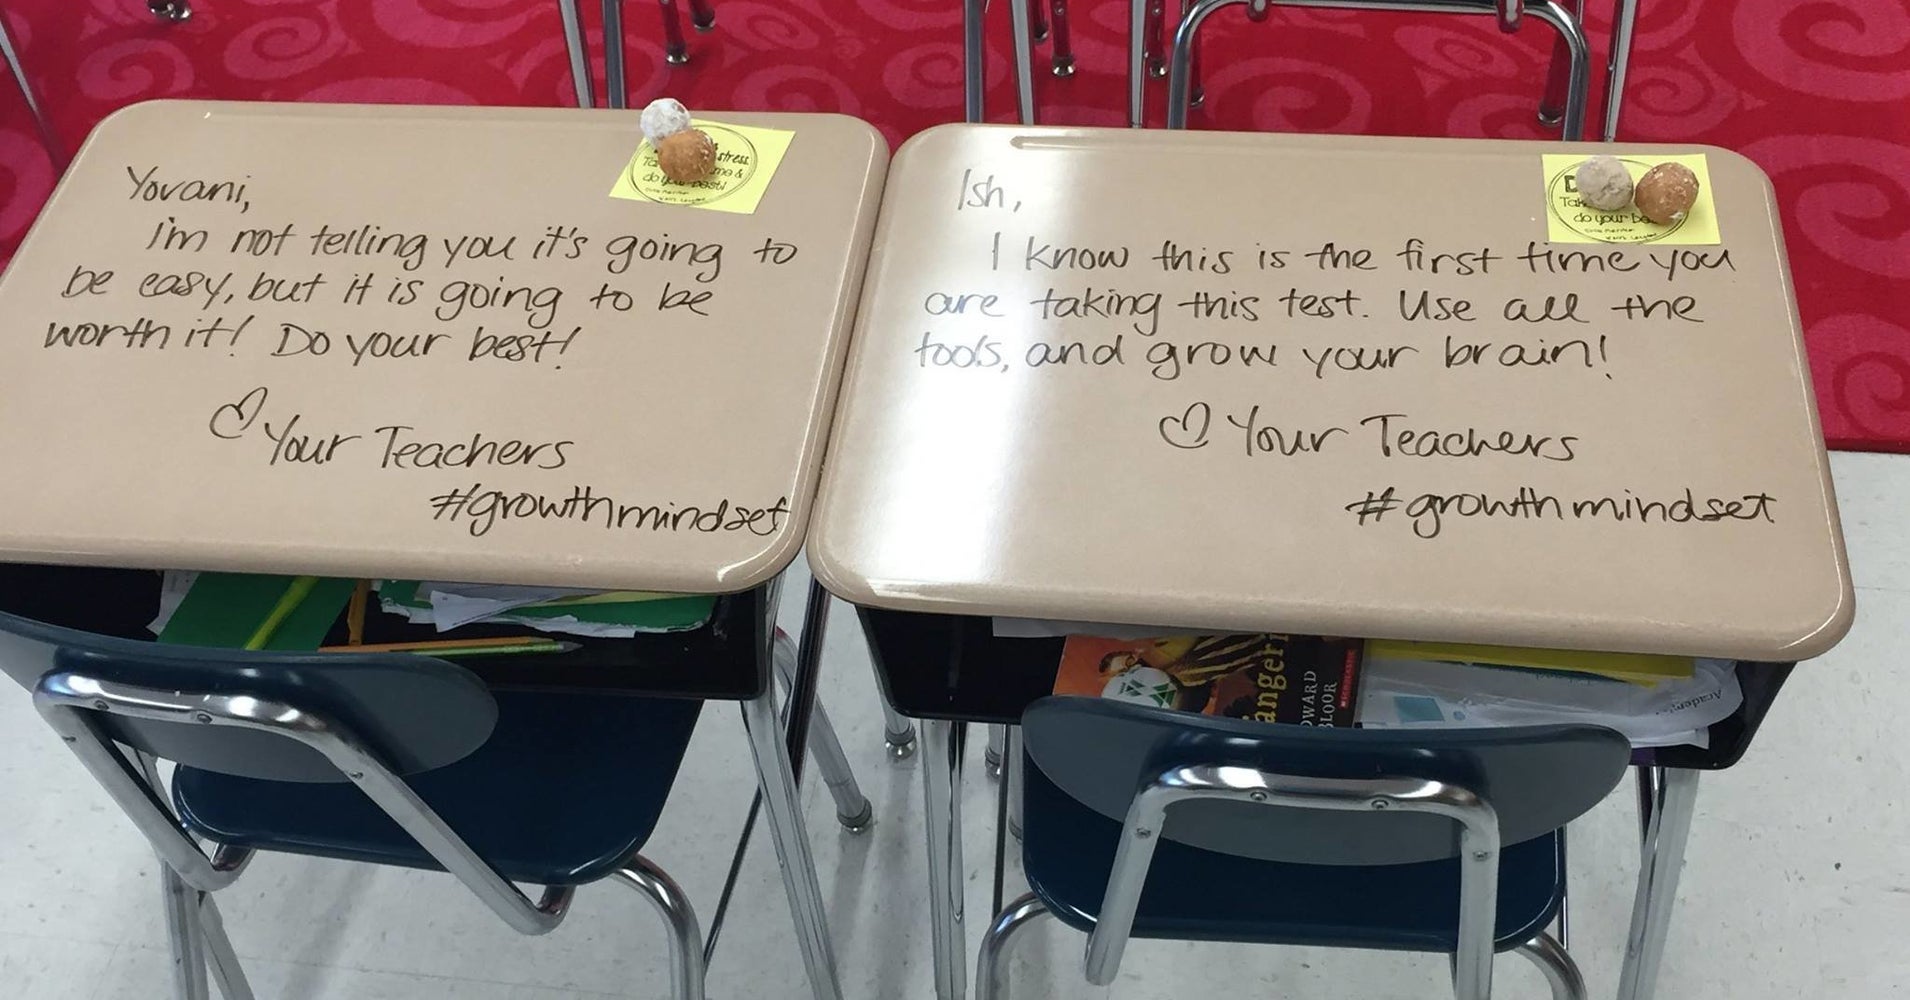 Yovani,
i'm not telling you it's going to
be easy, but it is going to be
worth it! Do your best!
Your Teachers
#growthmindset
stress.
me &
do your best!
Ish,
I know this is the first time you
are taking this test. Use all the
tools, and grow your brain!
Your Teachers
#growthmindset
do your be
anger
DWARD
BLOOR
SCHOLASTIC
Academi